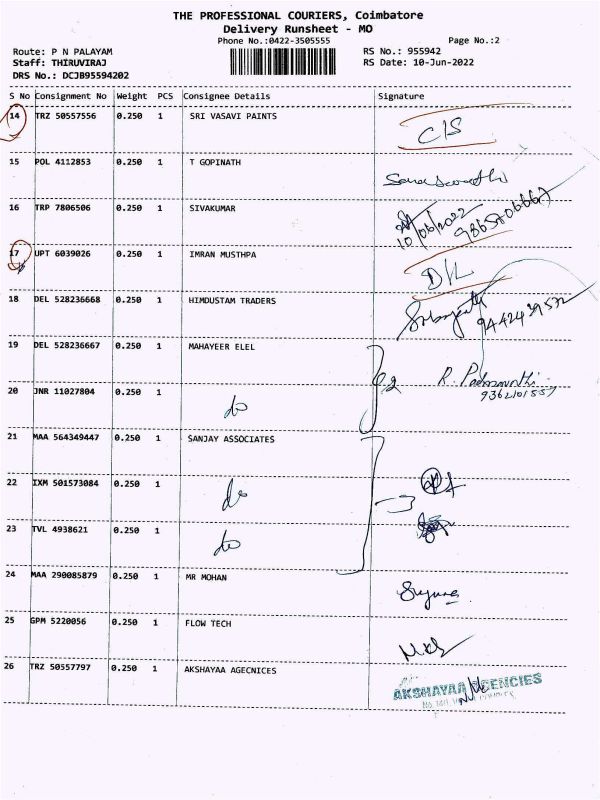 THE PROFESSIONAL COURIERS, Coimbatore
Delivery Runsheet - MO
Phone No.:0422-3505555 Page No.:2
Route: P N PALAYAM RS No.: 955942
Staff: THIRUVIRAJ RS Date: 10-Jun-2022
DRS No.: DCJB95594202
S No Consignment No Weight PCS Consignee Details Signature
14 TRZ 50557556 0.250 1 SRI VASAVI PAINTS C/S
15 POL 4112853 0.250 1 T GOPINATH
16 TRP 7806506 0.250 1 SIVAKUMAR 10/06/2022 9865706667
17 UPT 6039026 0.250 1 IMRAN MUSTHPA D/L
18 DEL 528236668 0.250 1 HIMDUSTAM TRADERS
19 DEL 528236667 0.250 1 MAHAYEER ELEL
20 JNR 11027804 0.250 1 do
21 MAA 564349447 0.250 1 SANJAY ASSOCIATES
22 IXM 501573084 0.250 1 do
23 TVL 4938621 0.250 1 do
24 MAA 290085879 0.250 1 MR MOHAN
25 GPM 5220056 0.250 1 FLOW TECH
26 TRZ 50557797 0.250 1 AKSHAYAA AGECNICES
AKSHAYAA AGENCIES